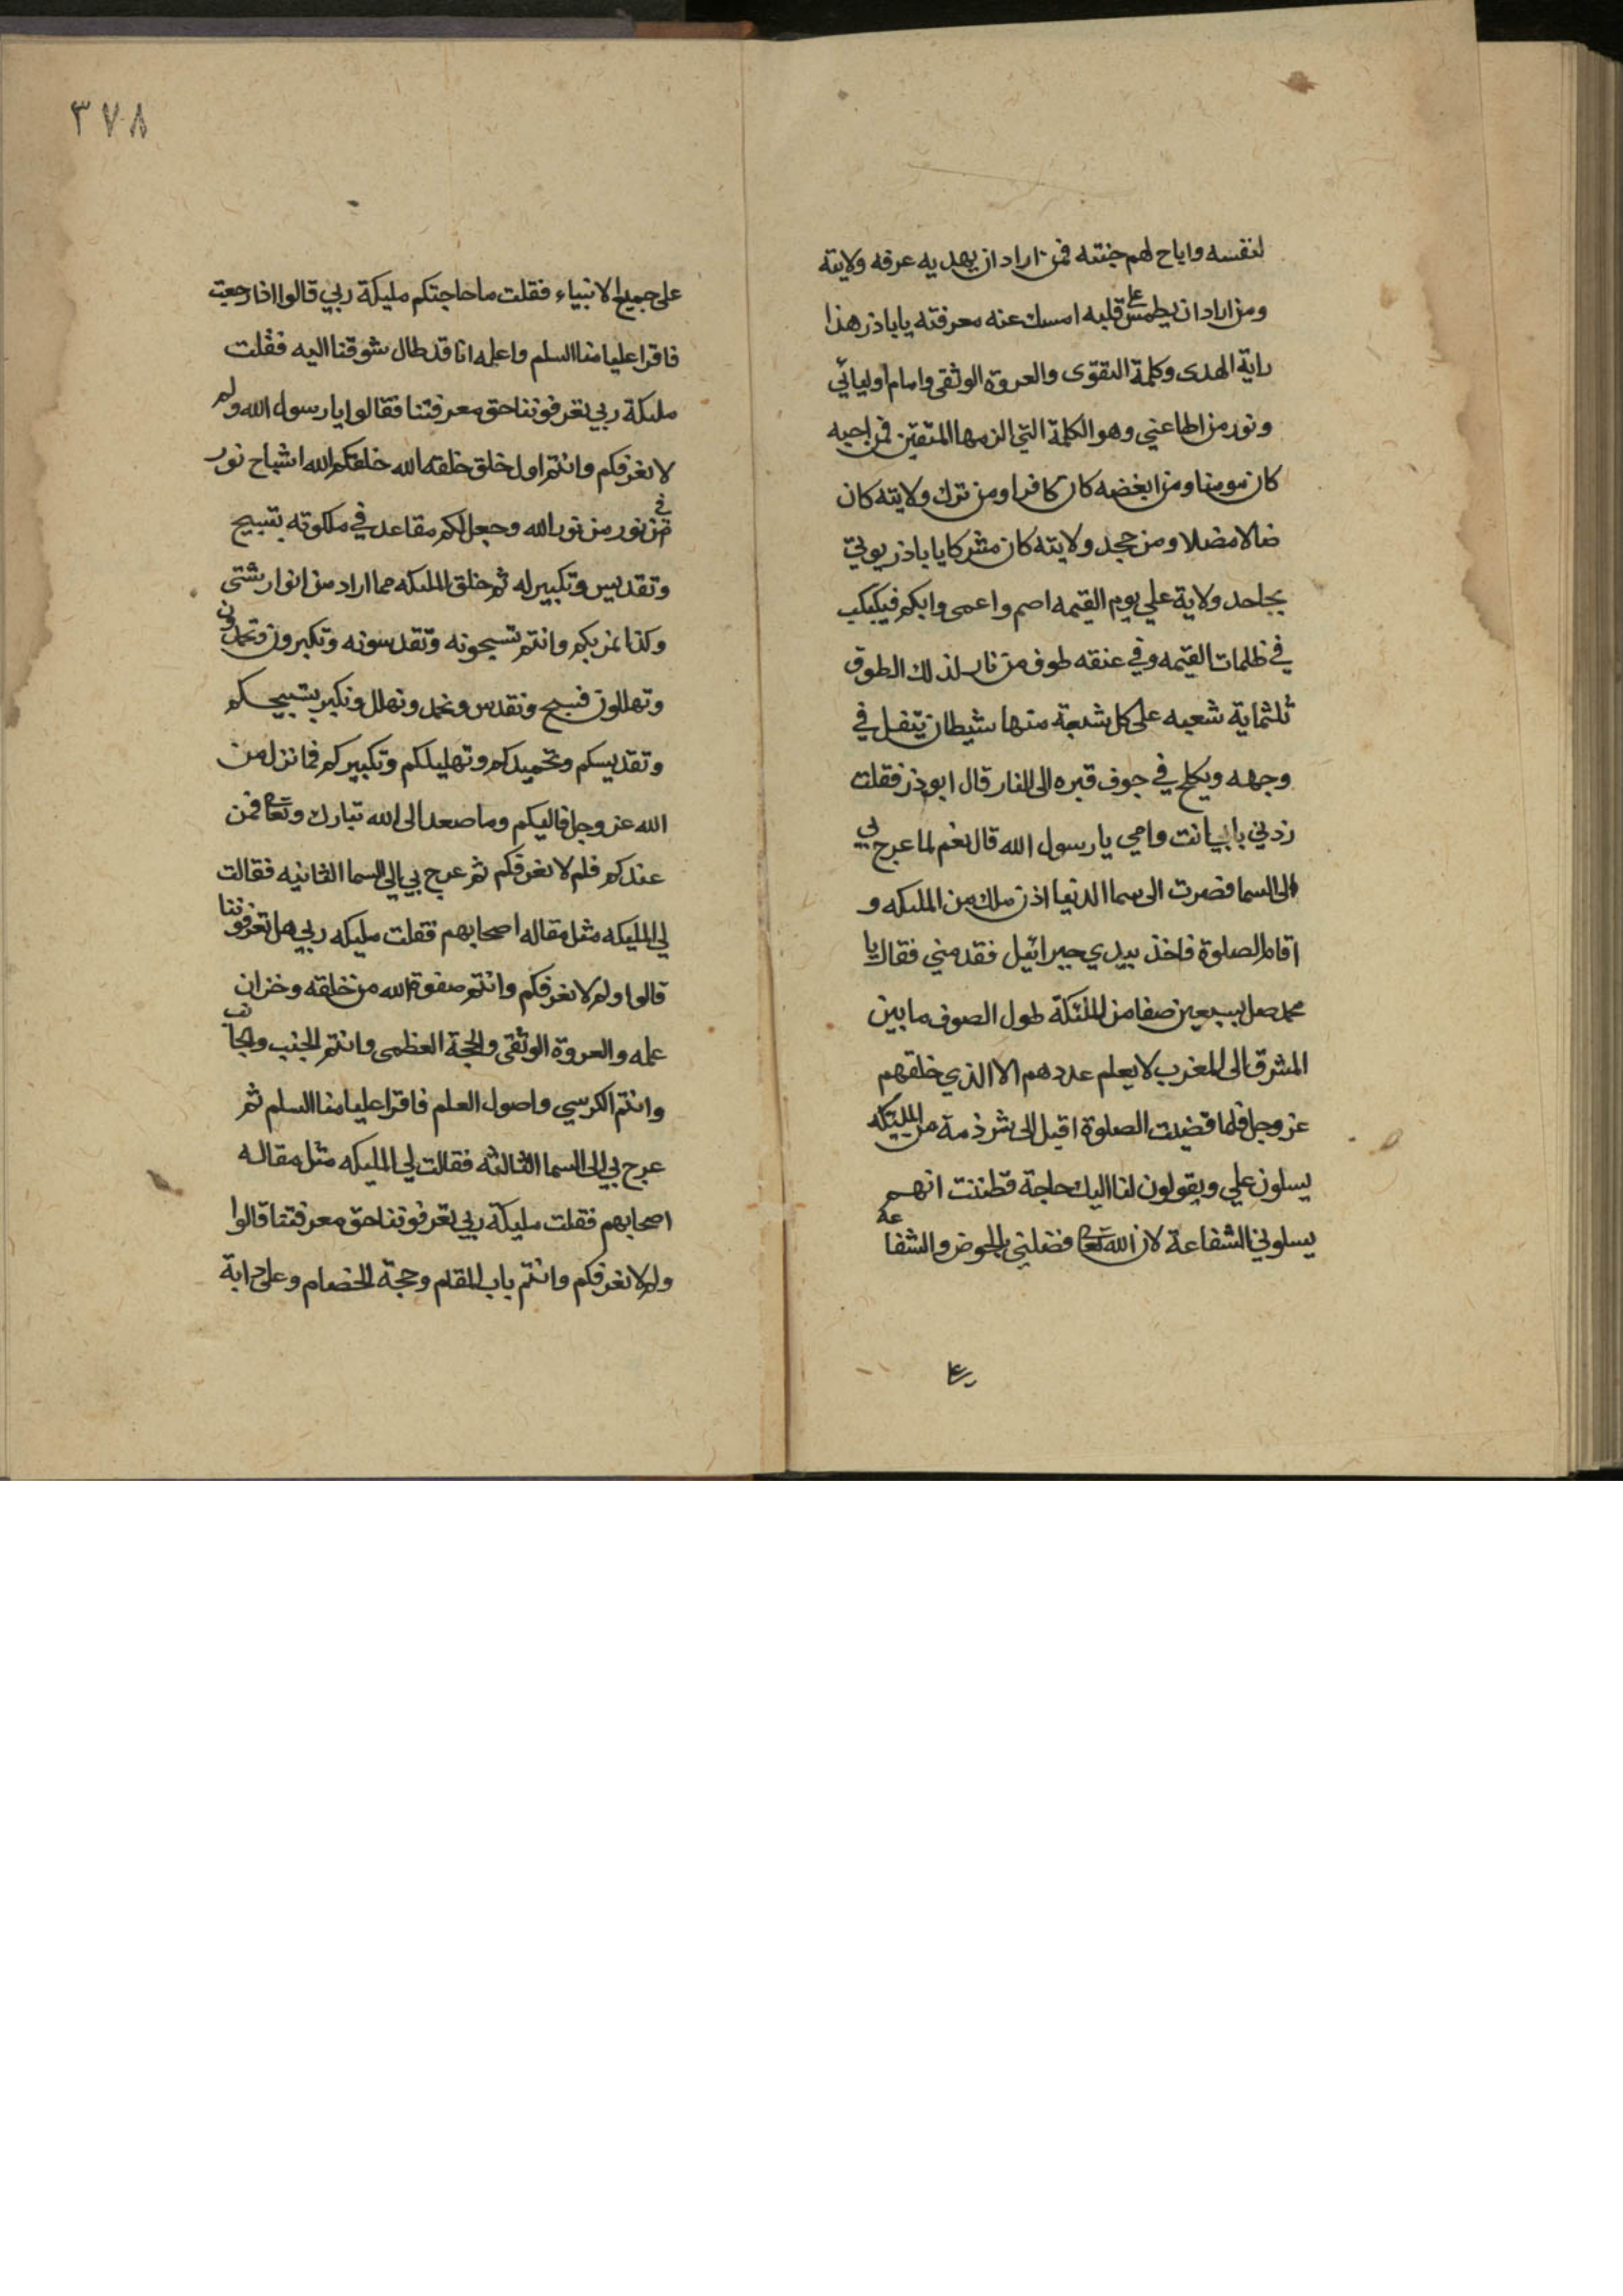 لنفسه واباح لهم جنته فمن اراد ان يهديه عرفه ولايته
ومن اراد ان يطمس على قلبه امسك عنه معرفته يا باذر هذا
راية الهدى وكلمة التقوى والعروة الوثقى وامام اوليائي
ونور من اطاعني وهو الكلمة التي الزمها المتقين فمن احبه
كان مومنا ومن ابغضه كان كافرا ومن ترك ولايته كان
ضالا مضلا ومن جحد ولايته كان مشركا يا باذر يوتي
بجاحد ولاية علي يوم القيمه اصم واعمى وابكم فيكبكب
في ظلمات القيمه وفي عنقه طوق من نار لذلك الطوق
ثلثماية شعبه على كل شعبة منها شيطان يتفل في
وجهه ويكلح في جوف قبره الى النار قال ابوذر فقلت
زدني بابي انت وامي يا رسول الله قال نعم لما عرج بي
الى السما فصرت الى سما الدنيا اذن ملك من الملىكه و
اقام الصلوة فاخذ بيدي جبرائيل فقدمني فقال يا
محمد صل بسبعين صفا من الملئكة طول الصوف ما بين
المشرق الى المغرب لا يعلم عددهم الا الذي خلقهم
عز وجل فلما قضيت الصلوة اقبل الى شرذمة من المليئكه
يسلون علي ويقولون لنا اليك حاجة فظننت انهم
يسلوني الشفاعة لان الله تعا فضلني بالحوض والشفاعة
على
٣٧٨
على جميع الانبياء فقلت ما حاجتكم مليكة ربي قالوا اذا رجعت
فاقرا عليا منا السلم واعلمه انا قد طال شوقنا اليه فقلت
ملىكة ربي تعرفوننا حق معرفتنا فقالوا يا رسول الله ولم
لا نعرفكم وانتم اول خلق خلقه الله خلقكم الله اشباح نور
في نور من نور الله وجعل لكم مقاعد في ملكوته بتسبيح
وتقديس وتكبير له ثم خلق الملىكه مما اراد من انوار شتى
وكنا نمر بكم وانتم تسبحونه وتقدسونه وتكبرون وتحمدون
وتهللون فنسبح ونقدس ونحمد ونهلل ونكبر بتسبيحكم
وتقديسكم وتحميدكم وتهليلكم وتكبيركم فما نزل من
الله عز وجل فاليكم وما صعد الى الله تبارك وتعا فمن
عندكم فلم لا نعرفكم ثم عرج بي الى السما الثانيه فقالت
لي المليكه مثل مقاله اصحابهم فقلت مليكه ربي هل تعرفوننا
قالوا ولم لا نعرفكم وانتم صفوة الله من خلقه وخزان
علمه والعروة الوثقى والحجة العظمى وانتم الجنب والجانب
وانتم الكرسي واصول العلم فاقرا عليا منا السلم ثم
عرج بي الى السما الثالثه فقالت لي المليكه مثل مقاله
اصحابهم فقلت مليكة ربي تعرفوننا حق معرفتنا قالوا
ولم لا نعرفكم وانتم باب المقام وحجة الخصام وعلي دابة